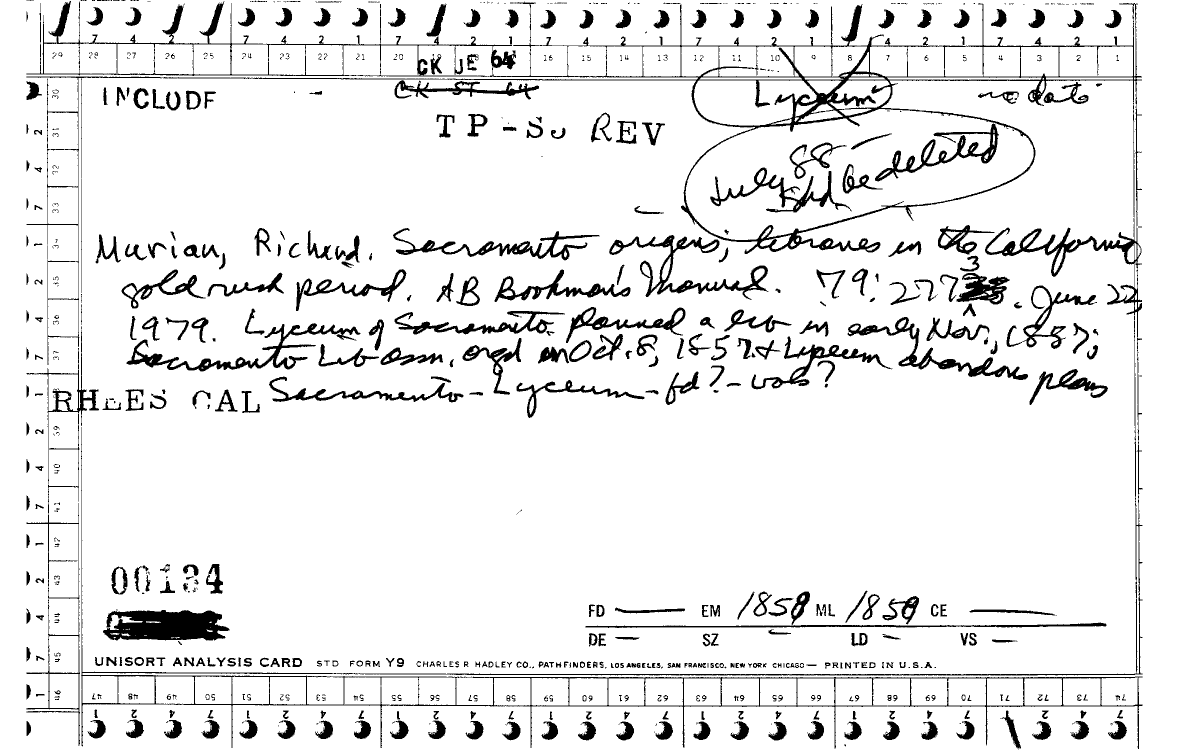 7 4 2 1 7 4 2 1 7 4 2 1 7 4 2 1 7 4 2 1 7 4 2 1 7 4 2 1
29 28 27 26 25 24 23 22 21 20 19 18 17 16 15 14 13 12 11 10 9 8 7 6 5 4 3 2 1
CK JE 64
CK ST 64
INCLUDE
Lyceum
no date
TP-SU REV
July 88 –
be deleted
Murian, Richard. Sacramento origins; libraries in the California
gold rush period. AB Bookman's Manual. 79: 2773. June 22,
1979. Lyceum of Sacramento planned a lib in early Nov., 1857;
Sacramento Lib assn. orgd on Oct. 8, 1857 & Lyceum abandons plans
RHEES CAL Sacramento – Lyceum – fd? – vols?
00134
FD — EM 1858 ML 1859 CE —
DE — SZ — LD — VS —
UNISORT ANALYSIS CARD STD FORM Y9 CHARLES R HADLEY CO., PATHFINDERS, LOS ANGELES, SAN FRANCISCO, NEW YORK CHICAGO — PRINTED IN U.S.A.
47 48 49 50 51 52 53 54 55 56 57 58 59 60 61 62 63 64 65 66 67 68 69 70 71 72 73 74
1 2 4 7 1 2 4 7 1 2 4 7 1 2 4 7 1 2 4 7 1 2 4 7 1 2 4 7